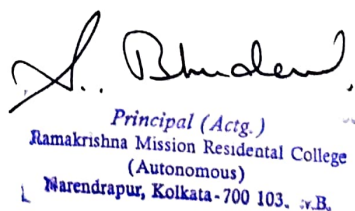 S. Bhudev.
Principal (Actg.)
Ramakrishna Mission Residental College
(Autonomous)
Narendrapur, Kolkata-700 103. W.B.